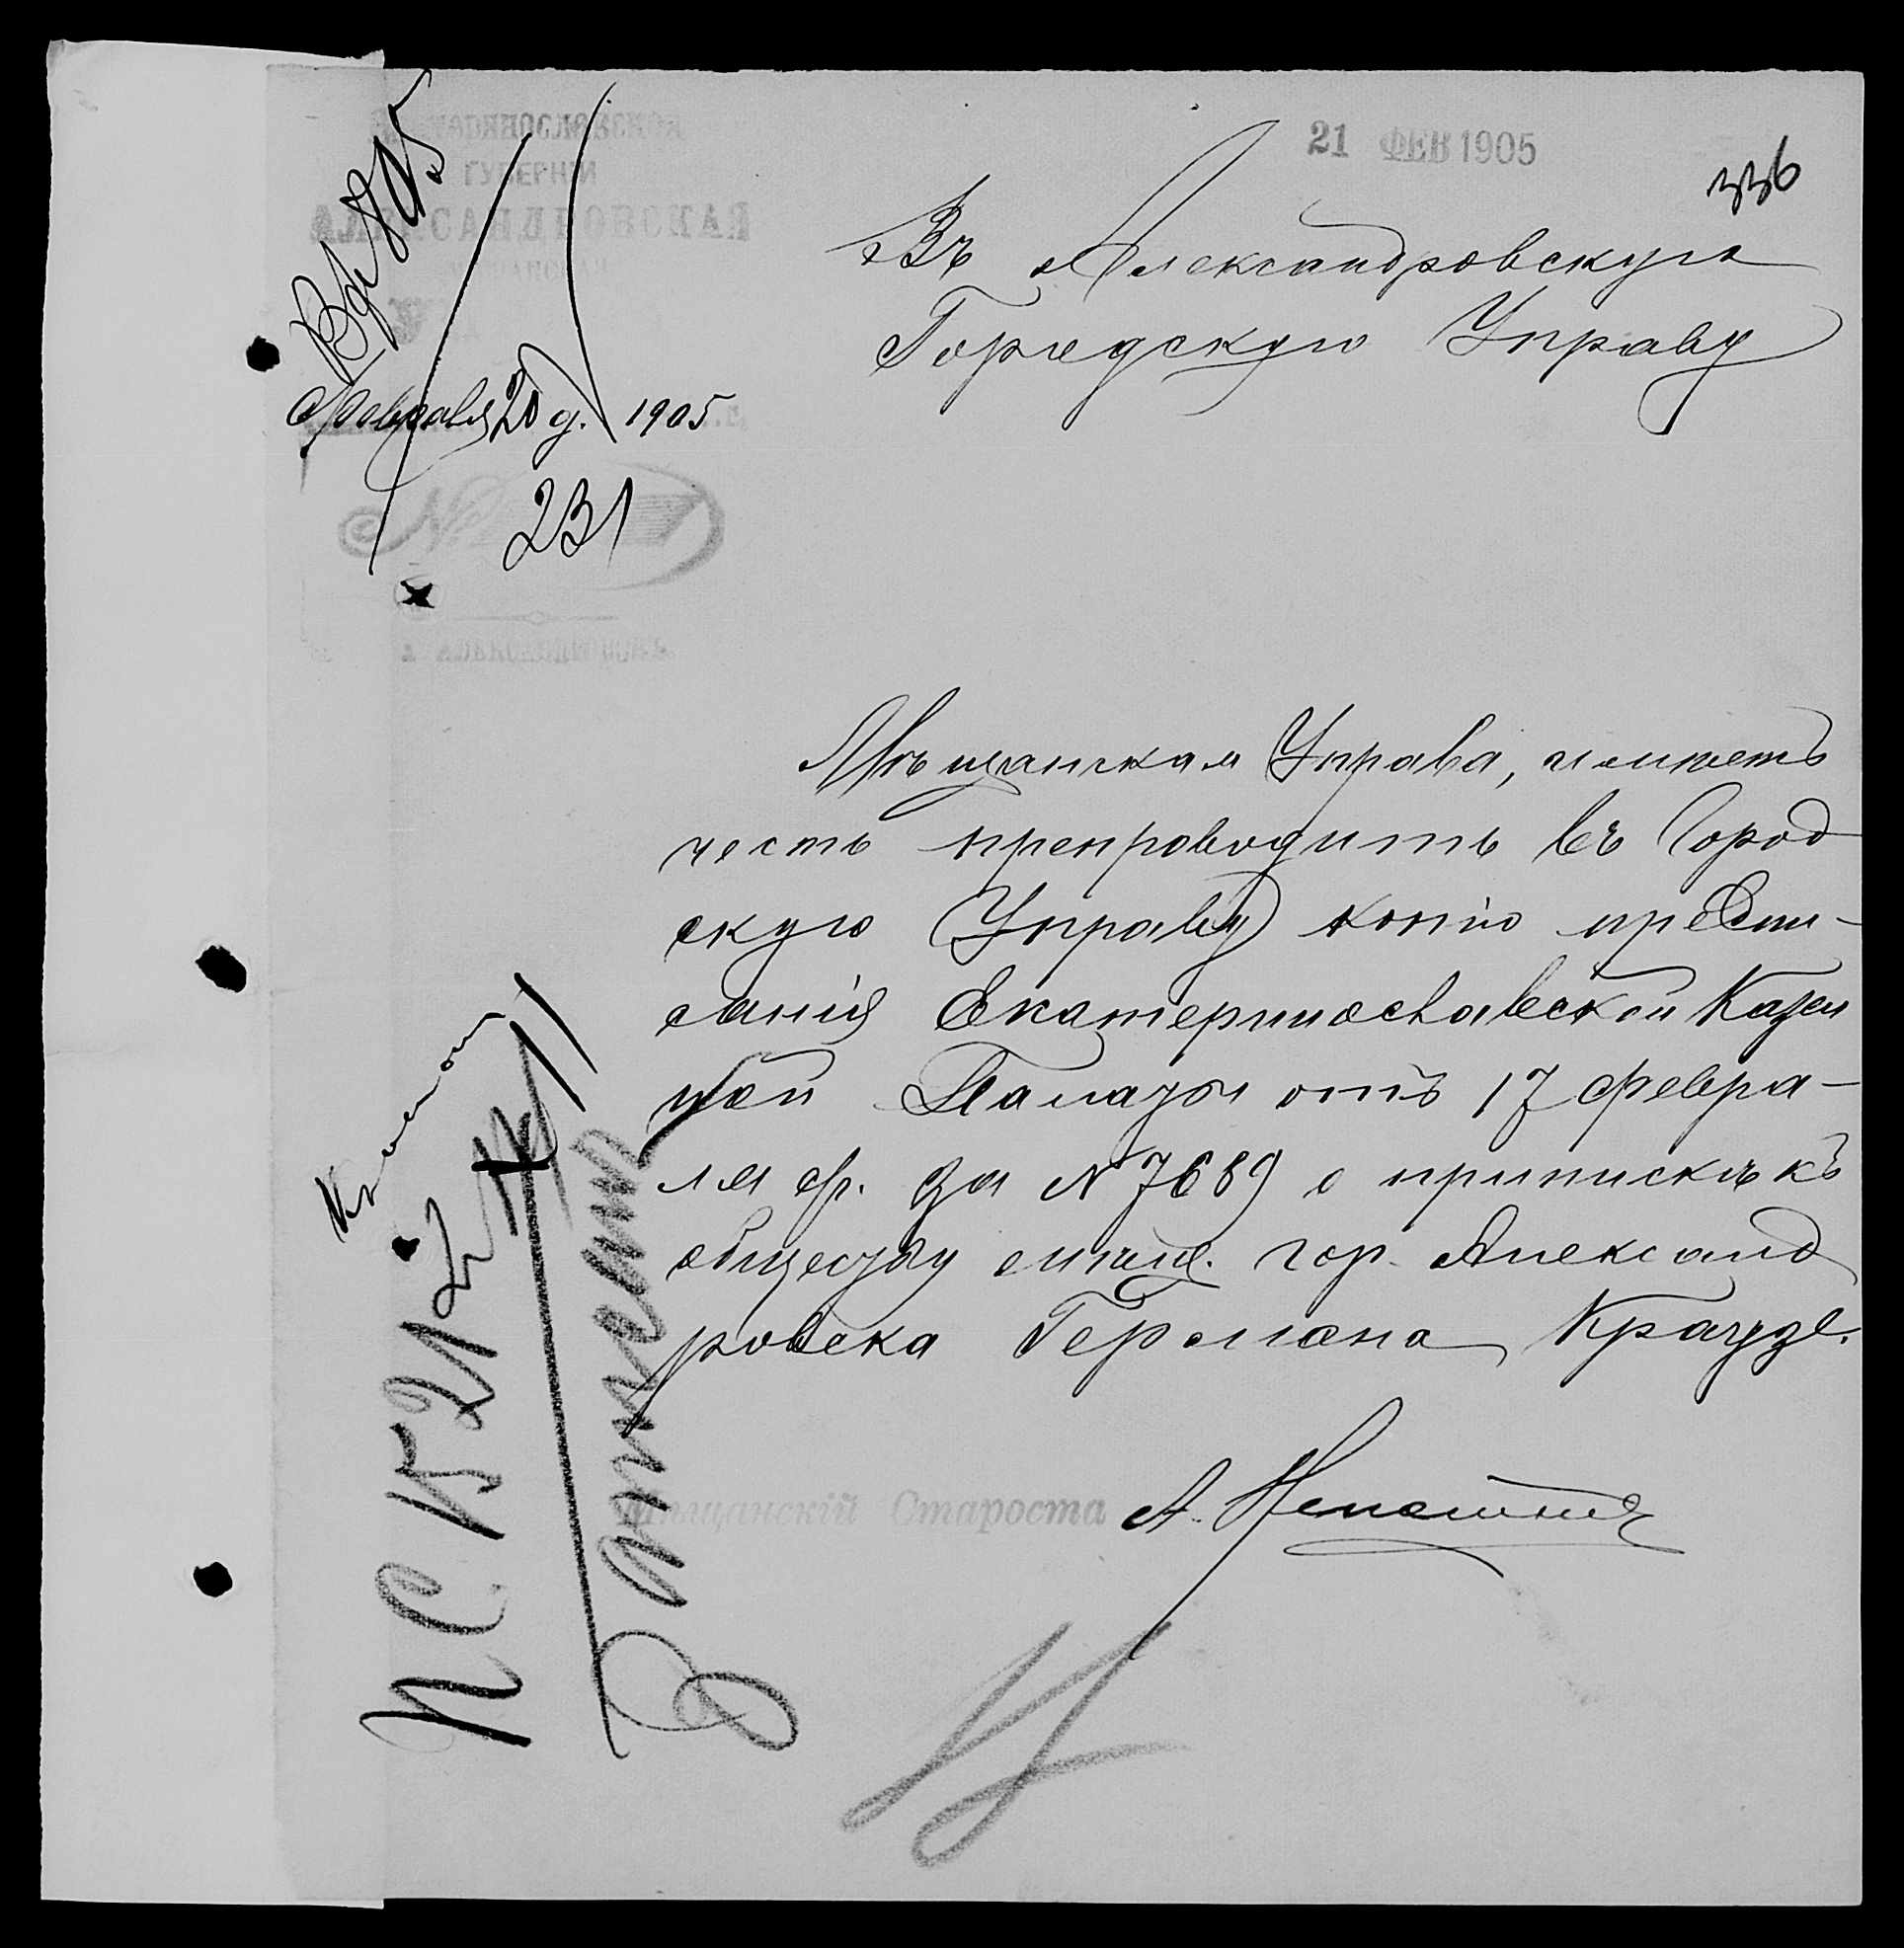 21 ФЕВ 1905
336
ЕКАТЕРИНОСЛАВСКОЙ
ГУБЕРНІИ
АЛЕКСАНДРОВСКАЯ
МѢЩАНСКАЯ
Февраля 20 д. 1905
№ 231
Въ Александровскую
Городскую Управу
Мѣщанская Управа, имѣетъ
честь препроводить въ Город
скую Управу копію предпи-
санія Екатеринославской Казен
ной Палаты отъ 17 февра-
ля ср. за № 7689 о припискѣ къ
обществу мѣщ. гор. Александ
ровска Германа Краузе.
Мѣщанскій Староста А.